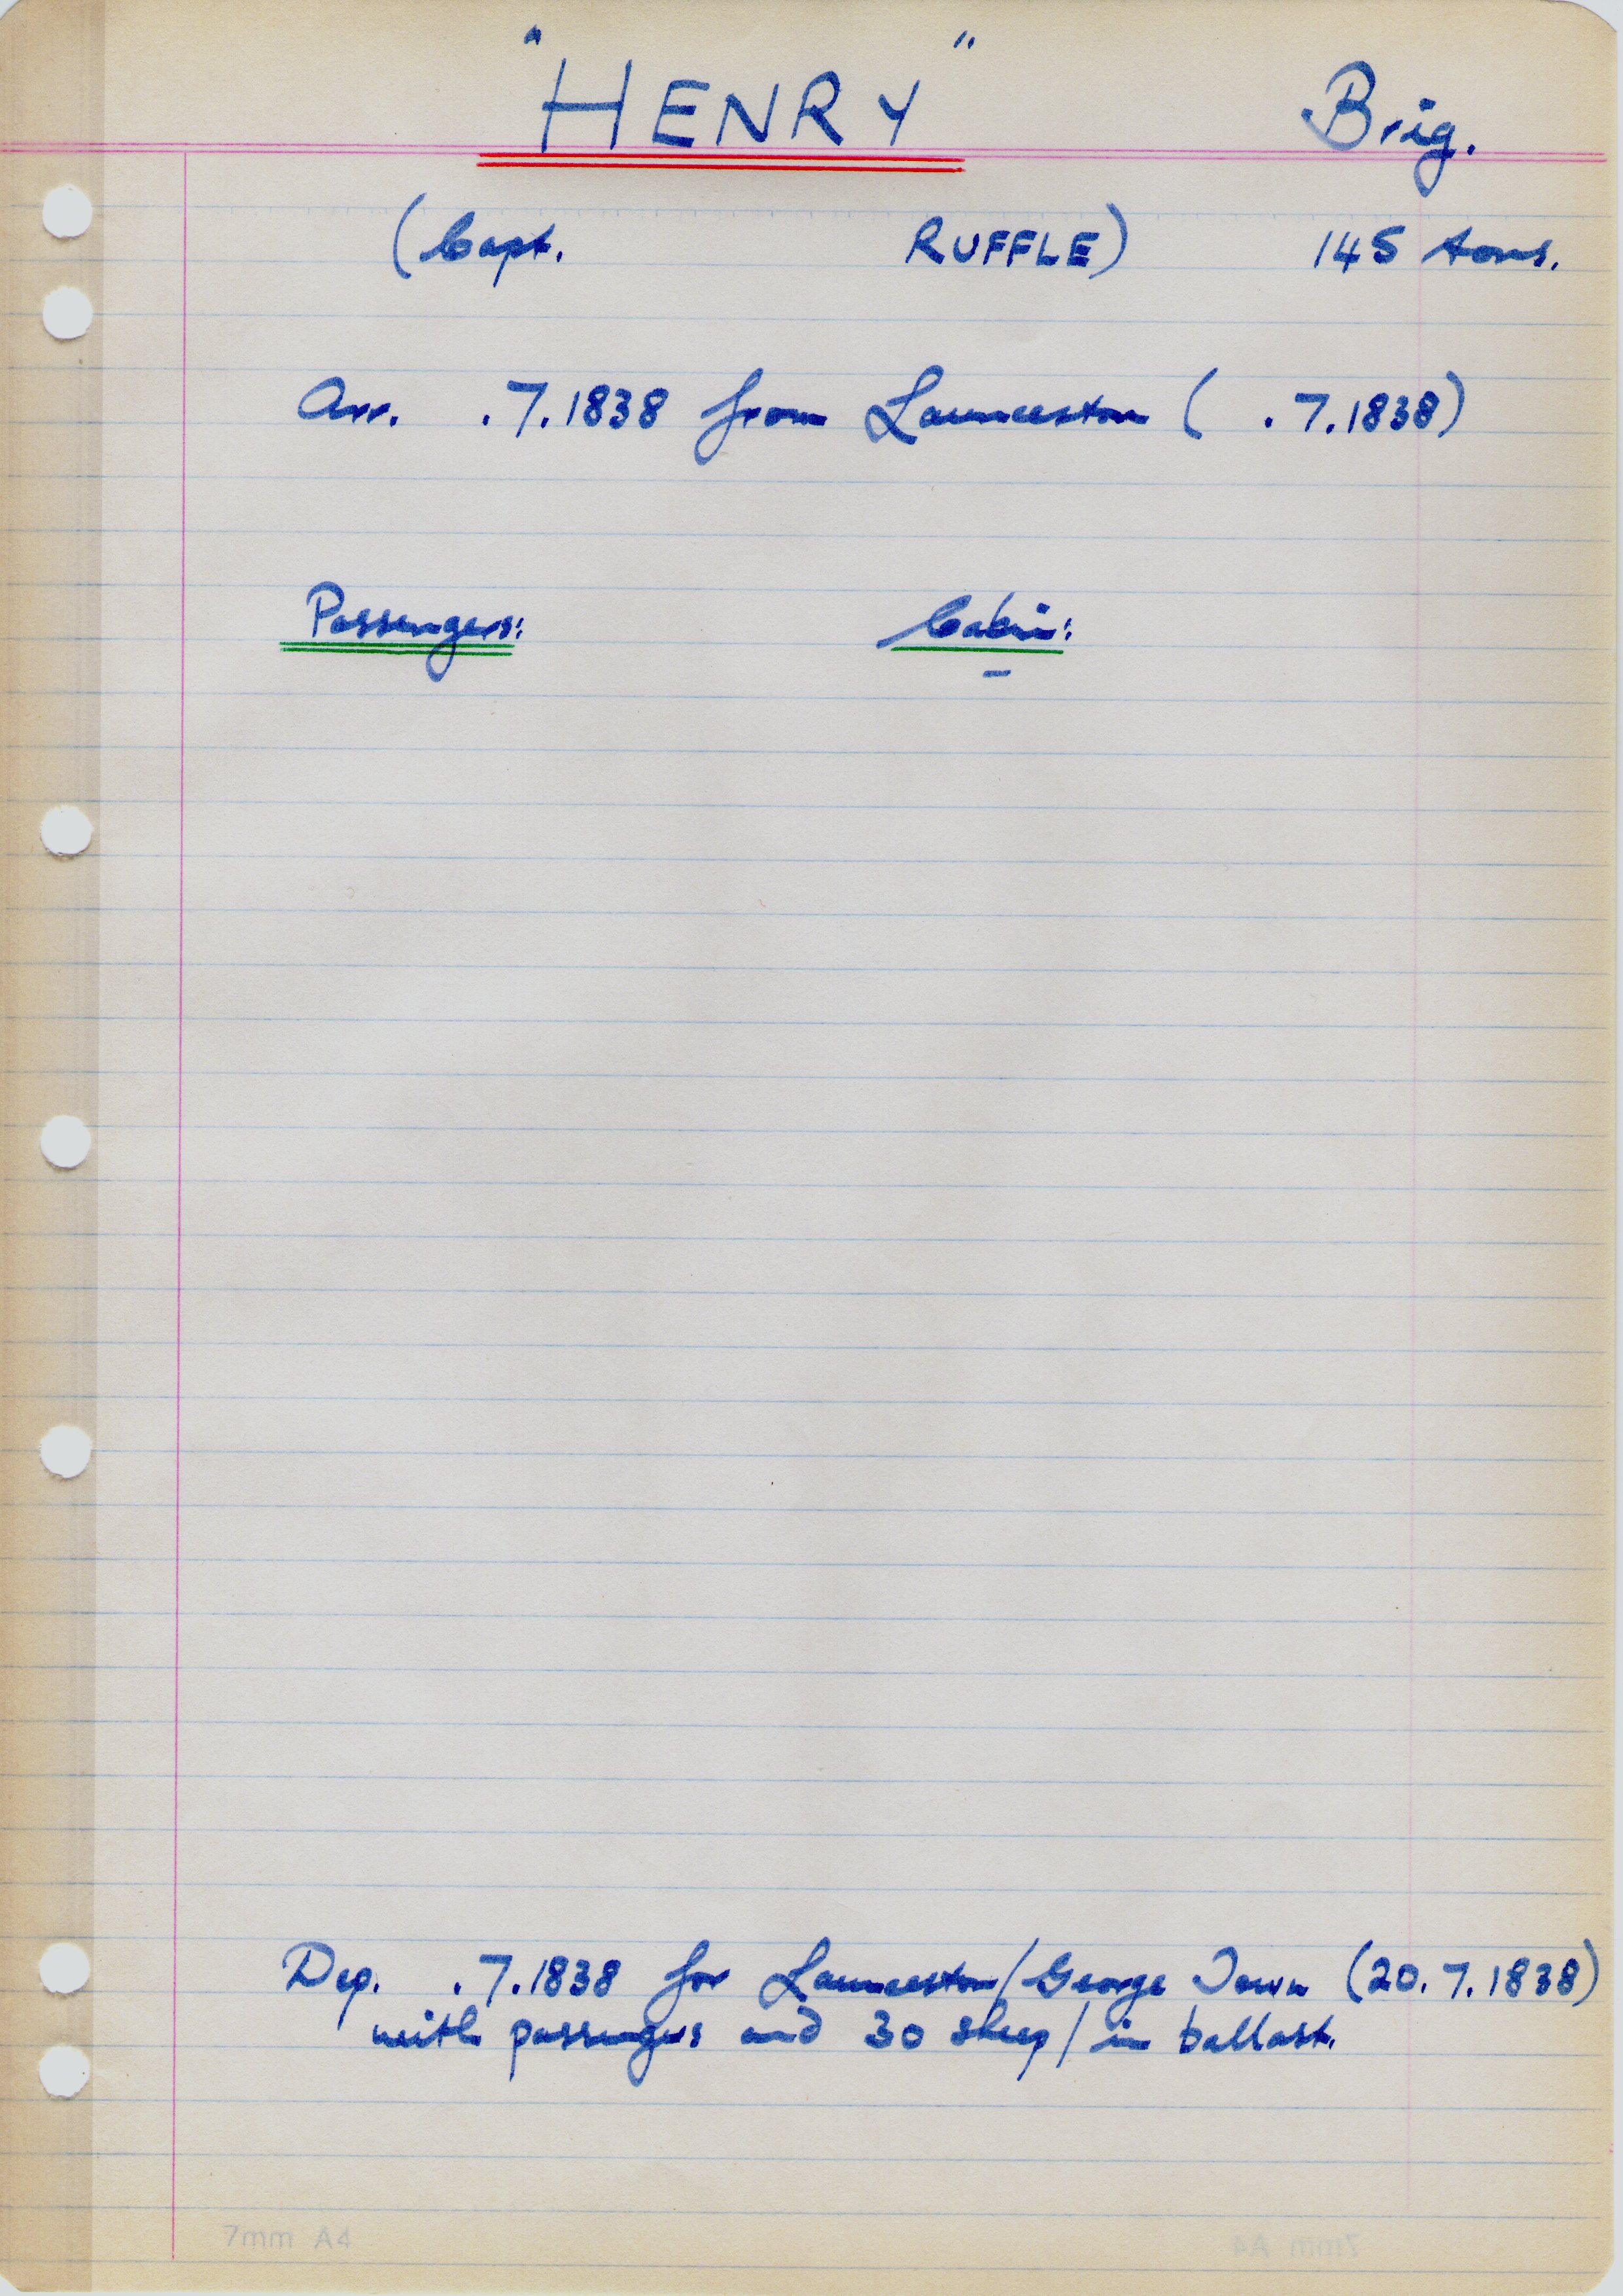 "HENRY" Brig.
(Capt. RUFFLE) 145 tons.
Arr. .7.1838 from Launceston ( .7.1838)
Passengers: Cabin:
–
Dep. .7.1838 for Launceston/George Town (20.7.1838)
with passengers and 30 sheep/in ballast.
7mm A4 7mm A4